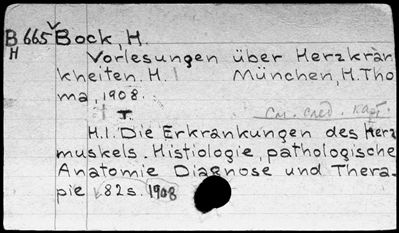 B 665 Bock, H.
H
Vorlesungen über Herzkran
kheiten. H. I München, H. Tho
ma, 1908.
I.
См. след. карт.
H.I. Die Erkrankungen des Herz
muskels. Histiologie, pathologische
Anatomie Diagnose und Thera-
pie 82 s. 1908